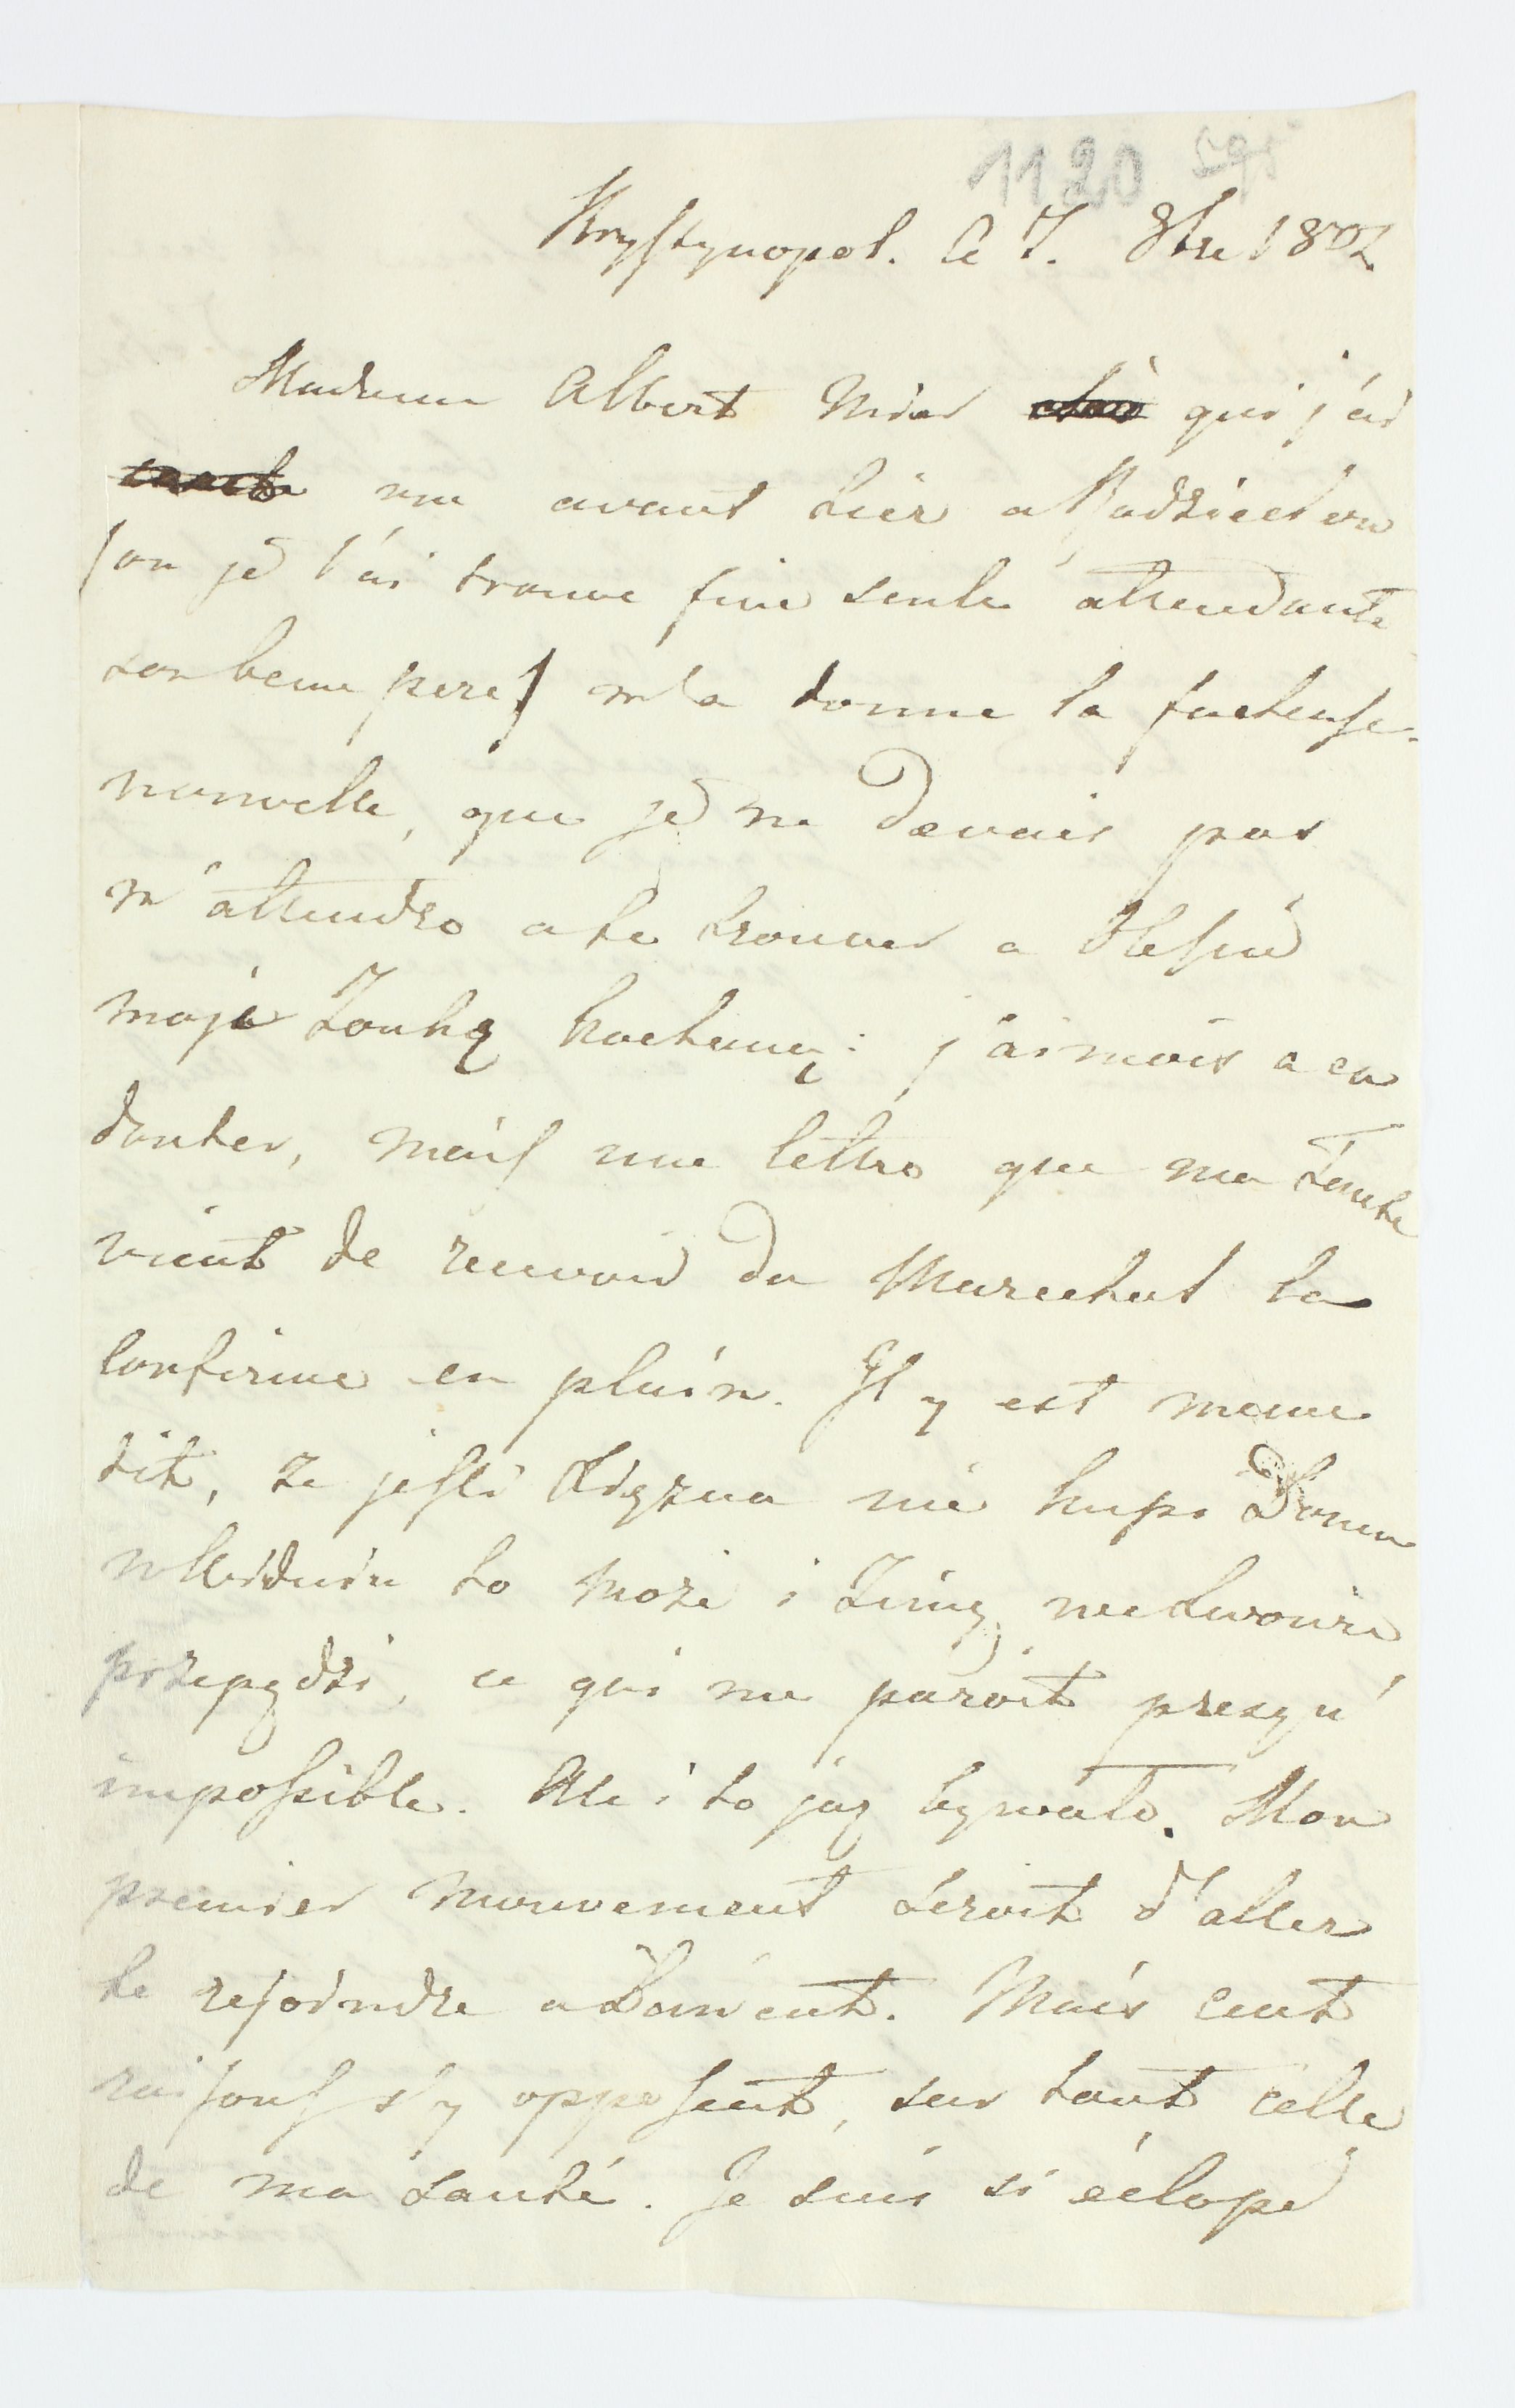 1120 595
Krystynopol. le 7. 8bre 1802
Madame Albert Mier qui j'ai
vu avant hier a Radziechow
(ou je l'ai trouve fine seule attendante
son beau pere) m'a donne la facheuse
nouvelle, que je ne devais pas
m'attendre a te trouver a Olesin
moja Zonko kochana: j'aimois a en
douter, mais une lettre que ma Tante
vient de recevoir du Marechal la
confirme en plain. Il y est meme
dit, ze jesli Xiężna nie kupi Domu
w Widniu to może i Zimę nadwornie
przepędzi, ce qui me paroit presqu'
impossible. Ale i to jaz bywało. Mon
premier mouvement seroit d'aller
te rejoindre a Lancut. Mais cent
raisons s'y opposent, sur tout celle
de ma santé. Je suis si éclopé